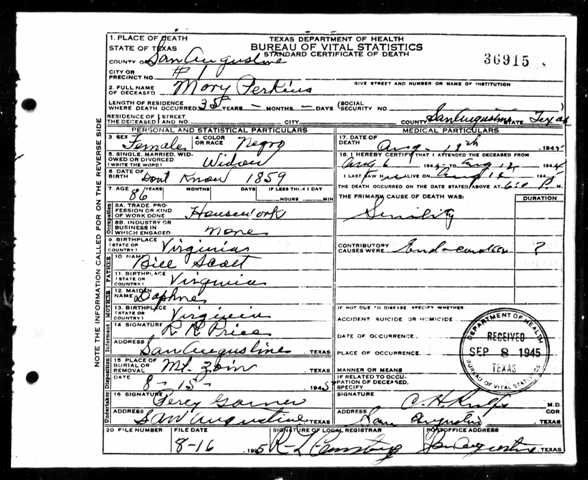 1. PLACE OF DEATH
TEXAS DEPARTMENT OF HEALTH
STATE OF TEXAS
BUREAU OF VITAL STATISTICS
COUNTY OF San Augustine
STANDARD CERTIFICATE OF DEATH
36915
CITY OR PRECINCT NO. #1
GIVE STREET AND NUMBER OR NAME OF INSTITUTION
2. FULL NAME OF DECEASED Mary Perkins
LENGTH OF RESIDENCE WHERE DEATH OCCURRED 35 YEARS — MONTHS — DAYS (SOCIAL SECURITY NO.
RESIDENCE OF THE DECEASED STREET AND NO. CITY COUNTY San Augustine STATE Texas
PERSONAL AND STATISTICAL PARTICULARS
MEDICAL PARTICULARS
3. SEX Female 4. COLOR OR RACE Negro
17. DATE OF DEATH Aug. 194
5. SINGLE, MARRIED, WIDOWED OR DIVORCED (WRITE THE WORD) Widow
18. I HEREBY CERTIFY THAT I ATTENDED THE DECEASED FROM
6. DATE OF BIRTH Dont Know 1859
I LAST SAW ALIVE ON Aug 12
7. AGE YEARS MONTHS DAYS IF LESS THAN 1 DAY
86 HOURS MIN
THE DEATH OCCURRED ON THE DATE STATED ABOVE AT P. M.
8A. TRADE, PROFESSION OR KIND OF WORK DONE Housework
THE PRIMARY CAUSE OF DEATH WAS: DURATION
Senility
8B. INDUSTRY OR BUSINESS IN WHICH ENGAGED None
9. BIRTHPLACE (STATE OR COUNTRY) Virginia
CONTRIBUTORY CAUSES WERE ?
10. NAME Bill Scott
11. BIRTHPLACE (STATE OR COUNTRY) Virginia
12. MAIDEN NAME Daphne
13. BIRTHPLACE (STATE OR COUNTRY) Virginia
IF NOT DUE TO DISEASE, SPECIFY WHETHER
ACCIDENT SUICIDE OR HOMICIDE
14. SIGNATURE R R Price
DATE OF OCCURRENCE
ADDRESS San Augustine TEXAS
PLACE OF OCCURRENCE
15. PLACE OF BURIAL OR REMOVAL Mt. Zoin TEXAS
MANNER OR MEANS
DATE 8-15- 1945
IF RELATED TO OCCUPATION OF DECEASED, SPECIFY
16. SIGNATURE Percy Garner
SIGNATURE M.D.
ADDRESS San Augustine TEXAS
ADDRESS San Augustine TEXAS
20 FILE NUMBER FILE DATE SIGNATURE OF LOCAL REGISTRAR POSTOFFICE ADDRESS
8-16 1945 San Augustine TEXAS
DEPARTMENT OF HEALTH
RECEIVED
SEP 8 1945
TEXAS
BUREAU OF VITAL STATISTICS
NOTE THE INFORMATION CALLED FOR ON THE REVERSE SIDE